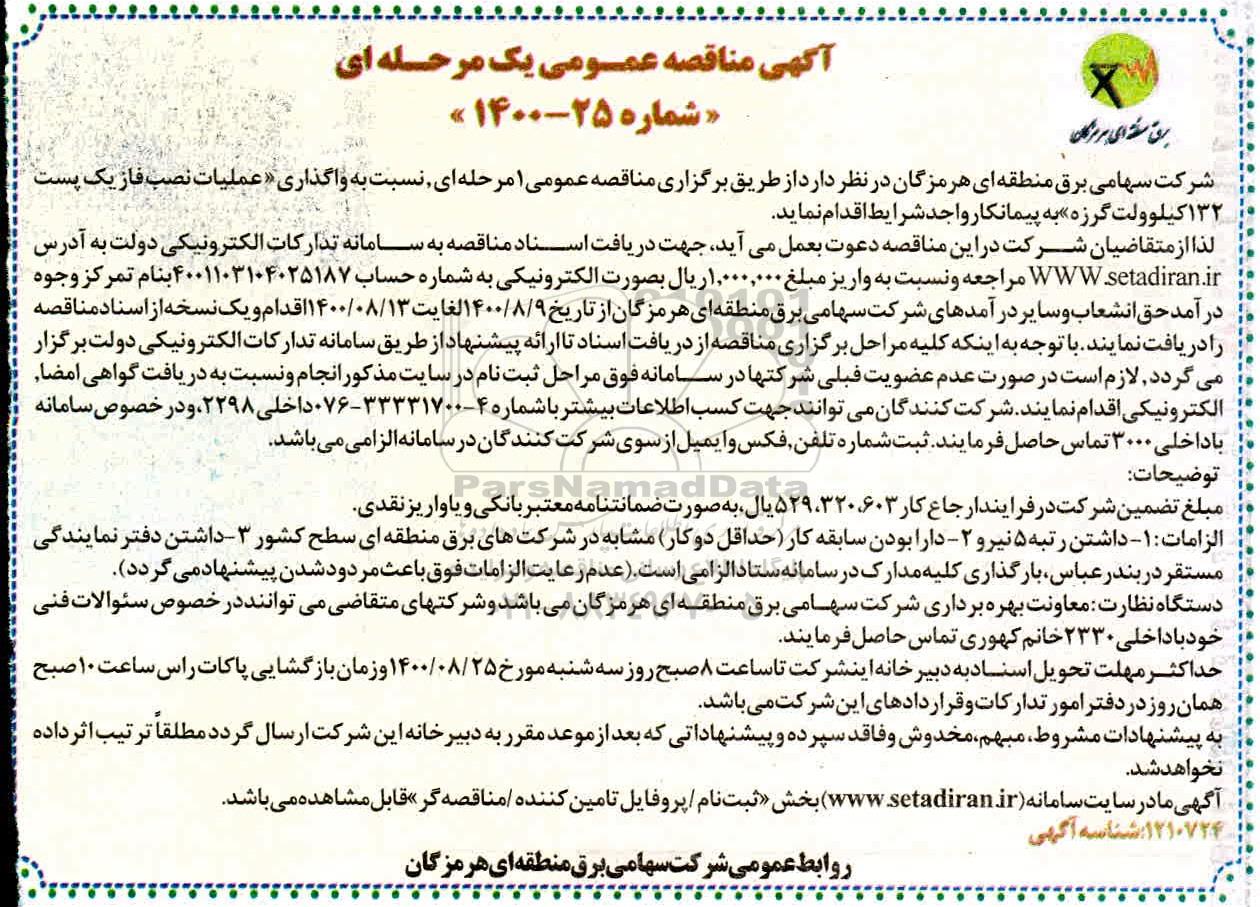 آگهی مناقصه عمومی یک مرحله ای
« شماره ۲۵-۱۴۰۰ »
برق منطقه ای هرمزگان
شرکت سهامی برق منطقه ای هرمزگان در نظر دارد از طریق برگزاری مناقصه عمومی ۱ مرحله ای , نسبت به واگذاری « عملیات نصب فاز یک پست
۱۳۲ کیلوولت گرزه » به پیمانکار واجد شرایط اقدام نماید.
لذا از متقاضیان شرکت در این مناقصه دعوت بعمل می آید، جهت دریافت اسناد مناقصه به سامانه تدارکات الکترونیکی دولت به آدرس
WWW.setadiran.ir مراجعه ونسبت به واریز مبلغ ۱,۰۰۰,۰۰۰ریال بصورت الکترونیکی به شماره حساب ۴۰۰۱۱۰۳۱۰۴۰۲۵۱۸۷ بنام تمرکز وجوه
در آمد حق انشعاب وسایر در آمدهای شرکت سهامی برق منطقه‌ای هرمزگان از تاریخ ۱۴۰۰/۸/۹ لغایت ۱۴۰۰/۰۸/۱۳ اقدام و یک نسخه از اسناد مناقصه
را دریافت نمایند. با توجه به اینکه کلیه مراحل برگزاری مناقصه از دریافت اسناد تا ارائه پیشنهاد از طریق سامانه تدارکات الکترونیکی دولت برگزار
می گردد , لازم است در صورت عدم عضویت قبلی شرکتها در سامانه فوق مراحل ثبت نام در سایت مذکور انجام ونسبت به دریافت گواهی امضا,
الکترونیکی اقدام نمایند. شرکت کنندگان می توانند جهت کسب اطلاعات بیشتر با شماره ۴-۳۳۳۳۱۷۰۰-۰۷۶ داخلی ۲۲۹۸، ودر خصوص سامانه
با داخلی ۳۰۰۰ تماس حاصل فرمایند. ثبت شماره تلفن, فکس وایمیل از سوی شرکت کنندگان در سامانه الزامی می باشد.
توضیحات:
مبلغ تضمین شرکت در فرایند ارجاع کار ۵۲۹،۳۲۰،۶۰۳ یال، به صورت ضمانتنامه معتبر بانکی و یا واریز نقدی.
الزامات: ۱- داشتن رتبه ۵ نیرو ۲- دارا بودن سابقه کار (حداقل دوکار) مشابه در شرکت های برق منطقه ای سطح کشور ۳- داشتن دفتر نمایندگی
مستقر در بندرعباس، بارگذاری کلیه مدارک در سامانه ستاد الزامی است. (عدم رعایت الزامات فوق باعث مردود شدن پیشنهاد می گردد).
دستگاه نظارت: معاونت بهره برداری شرکت سهامی برق منطقه ای هرمزگان می باشد و شرکتهای متقاضی می توانند در خصوص سئوالات فنی
خود با داخلی ۲۳۳۰ خانم کهوری تماس حاصل فرمایند.
حداکثر مهلت تحویل اسناد به دبیرخانه اینشرکت تا ساعت ۸ صبح روز سه شنبه مورخ ۱۴۰۰/۰۸/۲۵ وزمان بازگشایی پاکات راس ساعت ۱۰ صبح
همان روز در دفتر امور تدارکات وقراردادهای این شرکت می باشد.
به پیشنهادات مشروط، مبهم، مخدوش وفاقد سپرده و پیشنهاداتی که بعد از موعد مقرر به دبیرخانه این شرکت ارسال گردد مطلقاً ترتیب اثر داده
نخواهد شد.
آگهی ما در سایت سامانه (www.setadiran.ir) بخش « ثبت نام /پروفایل تامین کننده /مناقصه گر » قابل مشاهده می باشد.
۱۲۱۰۷۲۴:شناسه آگهی
روابط عمومی شرکت سهامی برق منطقه ای هرمزگان
ParsNamadData